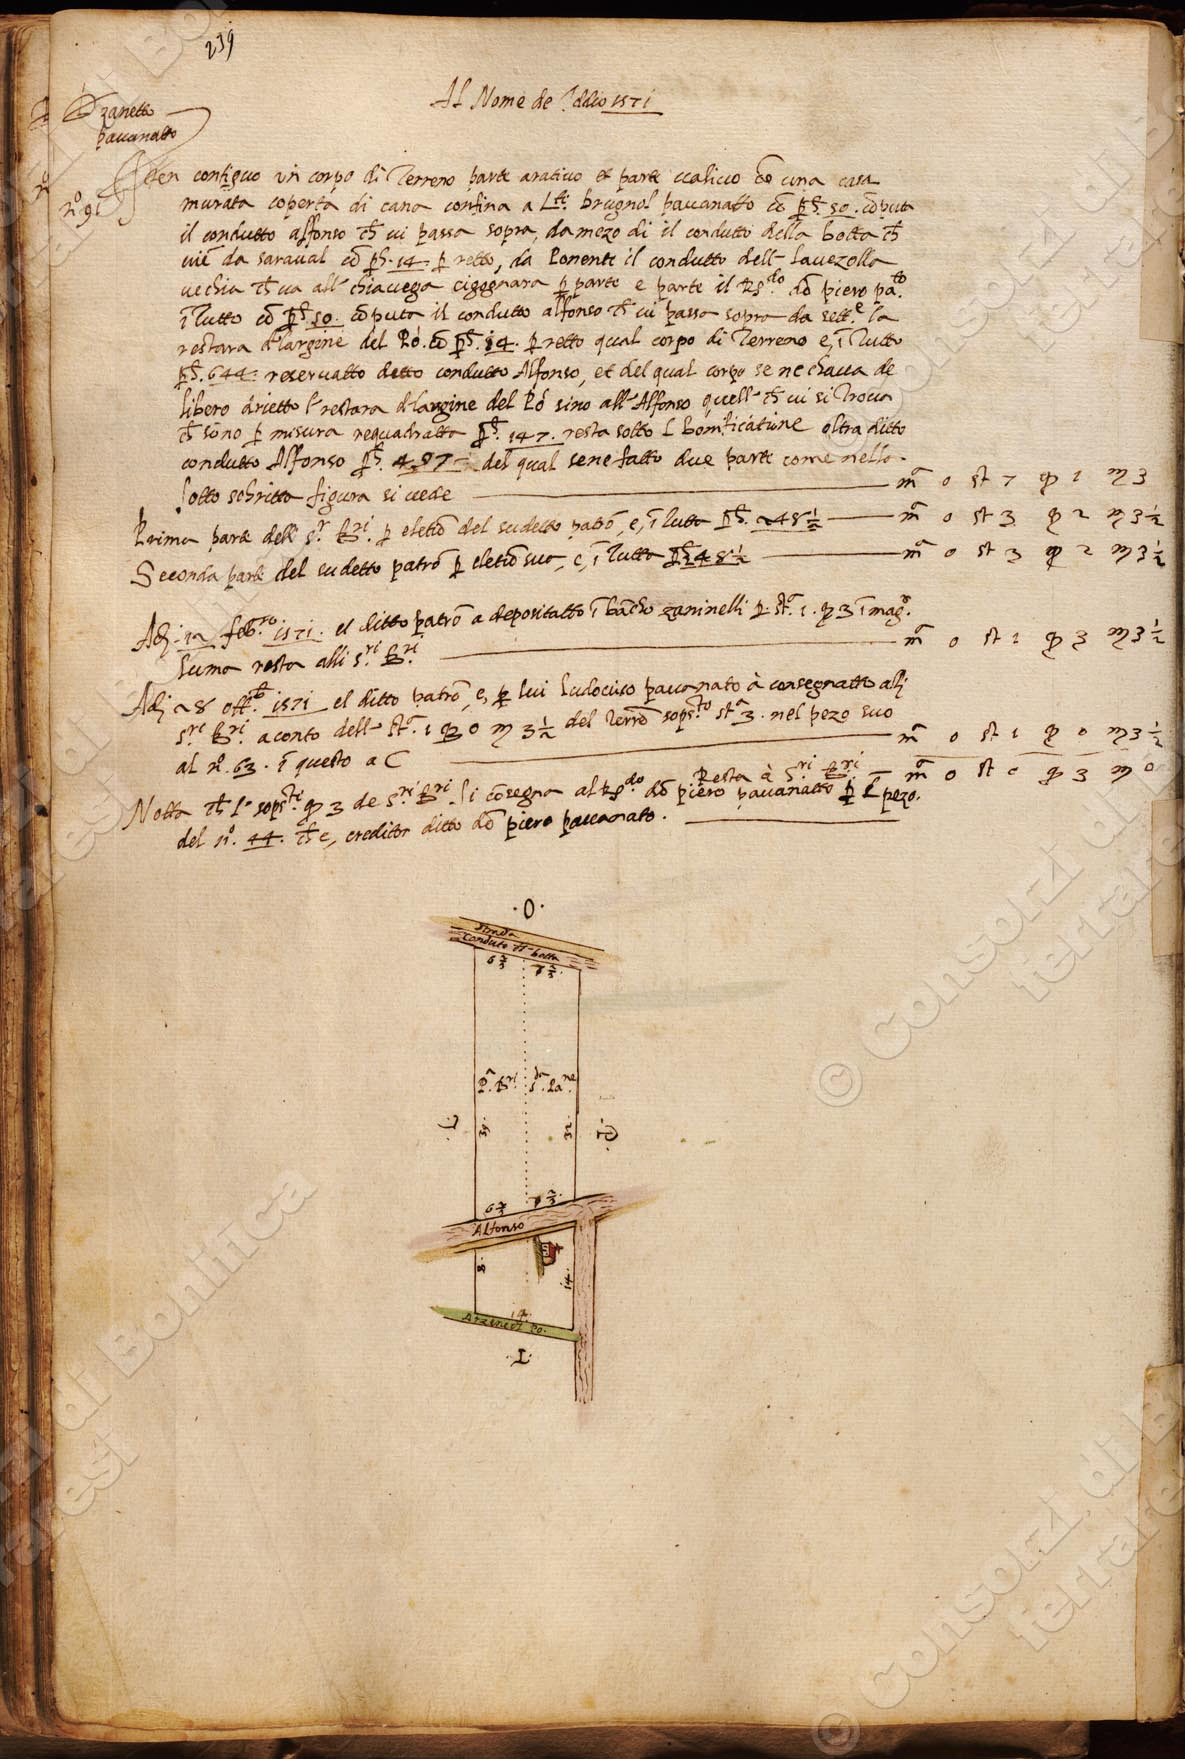 239
Al Nome de Iddio 1571
Zanetto
pavanatto
nº 91
Iten contiguo un corpo di Terreno parte arativo et parte valivo cō una casa
murata coperta di cana confina a L.tē brugnol pavanatto cō p̄h. 50. cōputa
il condutto alfonso ch̄ vi passa sopra, da mezo di il condutto della botta ch̄
viē da saraval cō p̄h. 14. p retto, da Ponente il condutto dell Lavezolla
vechia ch̄ va all chiavega cigognara p parte e parte il Rs.do dō piero pa.to
ī tutto cō p̄h. 50. cōputa il condutto alfonso ch̄ vi passa sopra da sett.e la
restara d largine del Pó. cō p̄h. 14. p retto qual corpo di Terreno e, ī tutto
p̄h. 644. reservatto detto condutto Alfonso, et del qual corpo se ne chava de
libero drietto l restara d largine del Pó sino all Alfonso quell ch̄ vi si trova
ch̄ sono p misura requadratta p̄h. 147. resta sotto l bonificatiōe oltra ditto
condutto Alfonso p̄h. 497 del qual sene fatto due parte come nella
sotto schritta figura si vede m̄ 0 st 7 q 1 m 3
Prima parte delli s.ri B.ri p eletiō del sudetto patrō, e, ī tutta p̄h. 248 1/2 m̄ 0 st 3 q 2 m 3 1/2
Seconda parte del sudetto patrō p eletiō sua, e, ī tutta p̄h. 248 1/2 m̄ 0 st 3 q 2 m 3 1/2
Adi. 12. feb.ro 1571. el ditto patrō a depositatto ī bācho zaninelli p. st.a 1. q 3 ī mag.a
suma resta alli s.ri B.ri m̄ 0 st 1 q 3 m 3 1/2
Adi 28 ott.b 1571 el ditto patrō, e, p lui Ludovico pavanato à consegnatto alj
s.ri B.ri a conto dell st.a 1 q 0 m 3 1/2 del Terrō sops.to st.a 3. nel pezo suo
al nº. 63. ī questo a C m̄ 0 st 1 q 0 m 3 1/2
Resta à S.ri B.ri m̄ 0 st 0 q 3 m 0
Notta ch̄ l sops.ti q 3 de s.ri B.ri si cōsegna al Rs.do dō piero pavanatto p l pezo.
del nº. 44. ch̄ e, creditor ditto dō piero pavanato.
.O.
Conduto d botta
6 2/3 7 2/3
P.a B.ri
s.da Pa.ne
39
32
6 2/3 7 2/3
Alfonso
8
14
14
Arzene d Po.
.I.
© Consorzi di Bonifica
ferraresi